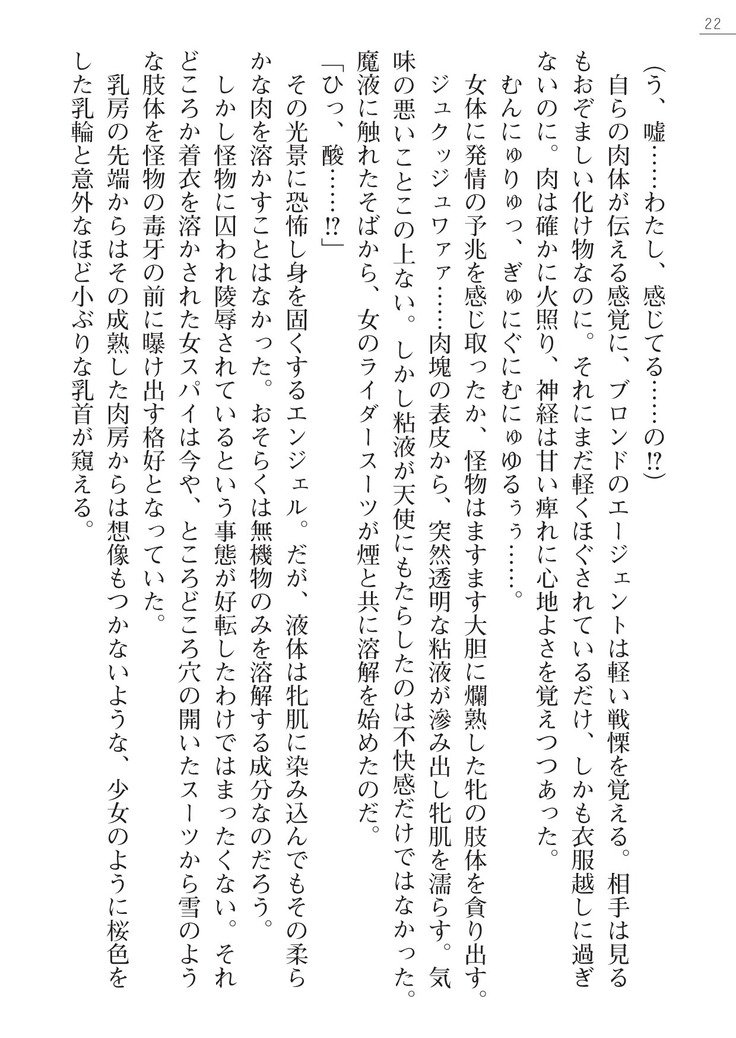 22
（う、嘘……わたし、感じてる……の!?）
自らの肉体が伝える感覚に、ブロンドのエージェントは軽い戦慄を覚える。相手は見る
もおぞましい化け物なのに。それにまだ軽くほぐされているだけ、しかも衣服越しに過ぎ
ないのに。肉は確かに火照り、神経は甘い痺れに心地よさを覚えつつあった。
むんにゅりゅっ、ぎゅにぐにむにゅゆるぅぅ……。
女体に発情の予兆を感じ取ったか、怪物はますます大胆に爛熟した牝の肢体を貪り出す。
ジュクッジュワァァ……肉塊の表皮から、突然透明な粘液が滲み出し牝肌を濡らす。気
味の悪いことこの上ない。しかし粘液が天使にもたらしたのは不快感だけではなかった。
魔液に触れたそばから、女のライダースーツが煙と共に溶解を始めたのだ。
「ひっ、酸……!?」
その光景に恐怖し身を固くするエンジェル。だが、液体は牝肌に染み込んでもその柔ら
かな肉を溶かすことはなかった。おそらくは無機物のみを溶解する成分なのだろう。
しかし怪物に囚われ陵辱されているという事態が好転したわけではまったくない。それ
どころか着衣を溶かされた女スパイは今や、ところどころ穴の開いたスーツから雪のよう
な肢体を怪物の毒牙の前に曝け出す格好となっていた。
乳房の先端からはその成熟した肉房からは想像もつかないような、少女のように桜色を
した乳輪と意外なほど小ぶりな乳首が窺える。